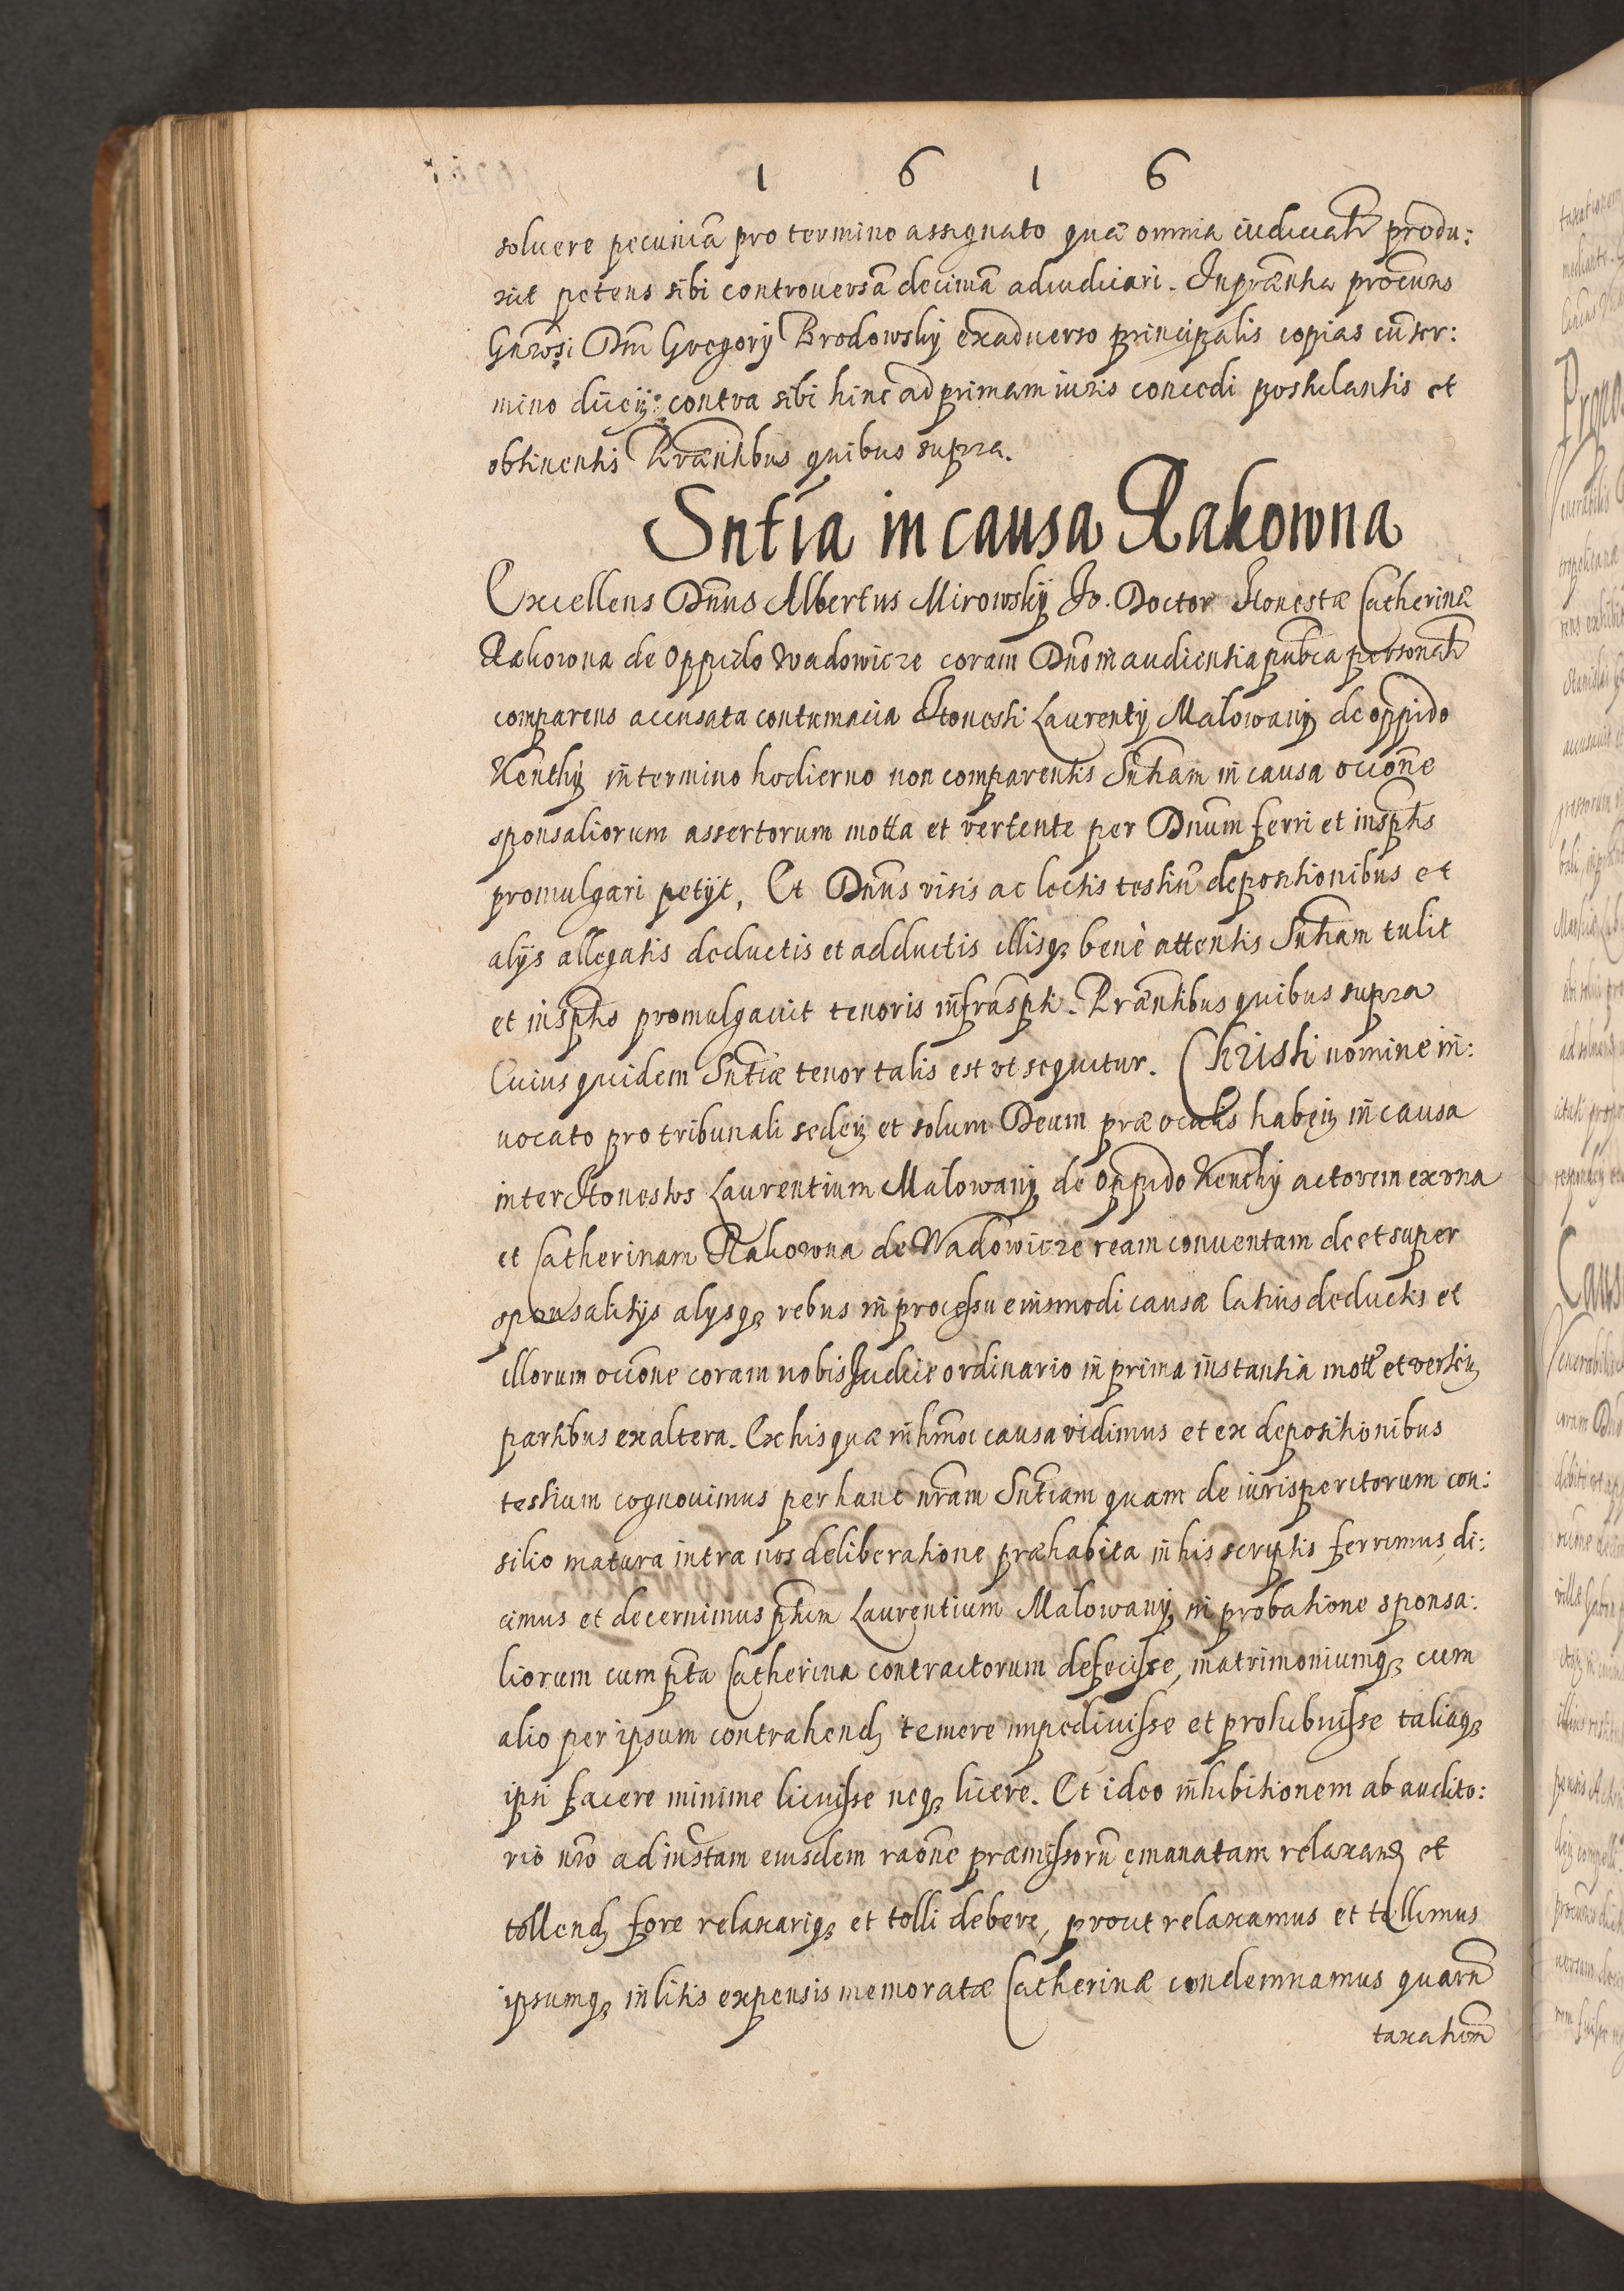 1 6 1 6
soluere pecuniã pro termino assignato quã omnia iudiciaĩr produ:
xit petens sibi controuersã decimã adiudicari. In prãntia procuñs
Gnrosi Dni Gregorij Brodowskÿ ex aduerso principalis copias cũ ter:
mino diceñ: contra sibi hinc ad primam iuris concedi postulantis et
obtinentis Prãntibus quibus supra.
Snt̃ia in causa Rakowna
Excellens Dñus Albertus Mirowskÿ Jo. Doctor Honestæ Catherinæ
Rakowna de Oppido Wadowicze coram Dño in audientia pub̃ca personalr̃
comparens accusata contumacia Honesti Laurentÿ Malowanÿ de oppido
Kenthÿ in termino hodierno non comparentis Snt̃iam in causa occõne
sponsaliorum assertorum motta et vertente per Dnũm ferri et inspt̃is
promulgari petÿt, Et Dñus visis ac lectis testiũ depositionibus et
alÿs allegatis deductis et adductis illisq; benè attentis Snt̃iam tulit
et inspt̃is promulgauit tenoris infraspt̃i. Prãntibus quibus supra
Cuius quidem Snt̃iæ tenor talis est vt sequitur. Christi nomine in:
uocato pro tribunali sedeñ et solum Deum præ oculis habeñ in causa
inter Honestos Laurentium Malowanÿ de Oppido Kenthÿ actorem ex vna
et Catherinam Rakowna de Wadowicze ream conuentam de et super
sponsalitÿs alÿsq; rebus in processu eiusmodi causæ latius deductis et
illorum occõne coram nobis Judice ordinario in prima instantia mott̃ et verteñ
partibus ex altera. Ex his quæ in hmõi causa vidimus et ex depositionibus
testium cognouimus per hanc nr̃am Snt̃iam quam de iurisperitorum con:
silio matura intra nos deliberatione præhabita in his scriptis ferrimus, di:
cimus et decernimus pt̃um Laurentium Malowanÿ in probatione sponsa:
liorum cum pt̃a Catherina contractorum defecisse, matrimoniumq; cum
alio per ipsum contrahend; temere impediuisse et prohibuisse taliaq;
ipsi facere minime licuisse neq; licere. Et ideo inhibitionem ab audito:
rio nr̃o ad instam eiusdem raõne præmissorũ emanatam relaxand; et
tollend; fore relaxariq; et tolli debere, prout relaxamus et tollimus
ipsumq; in litis expensis memoratæ Catherinæ condemnamus quarũ
taxatiõm